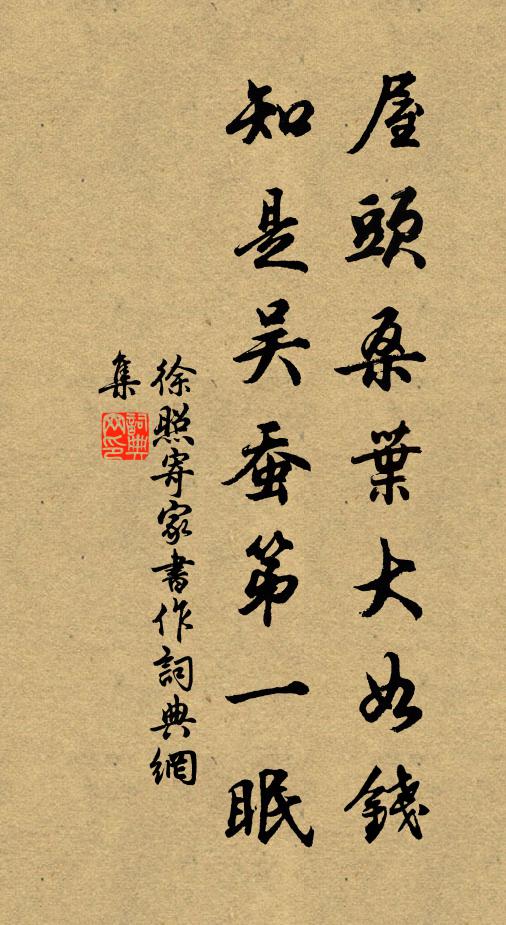 屋頭桑葉大如錢
知是吴蚕第一眠
徐照寄家書作詞典網
集
詞典網印